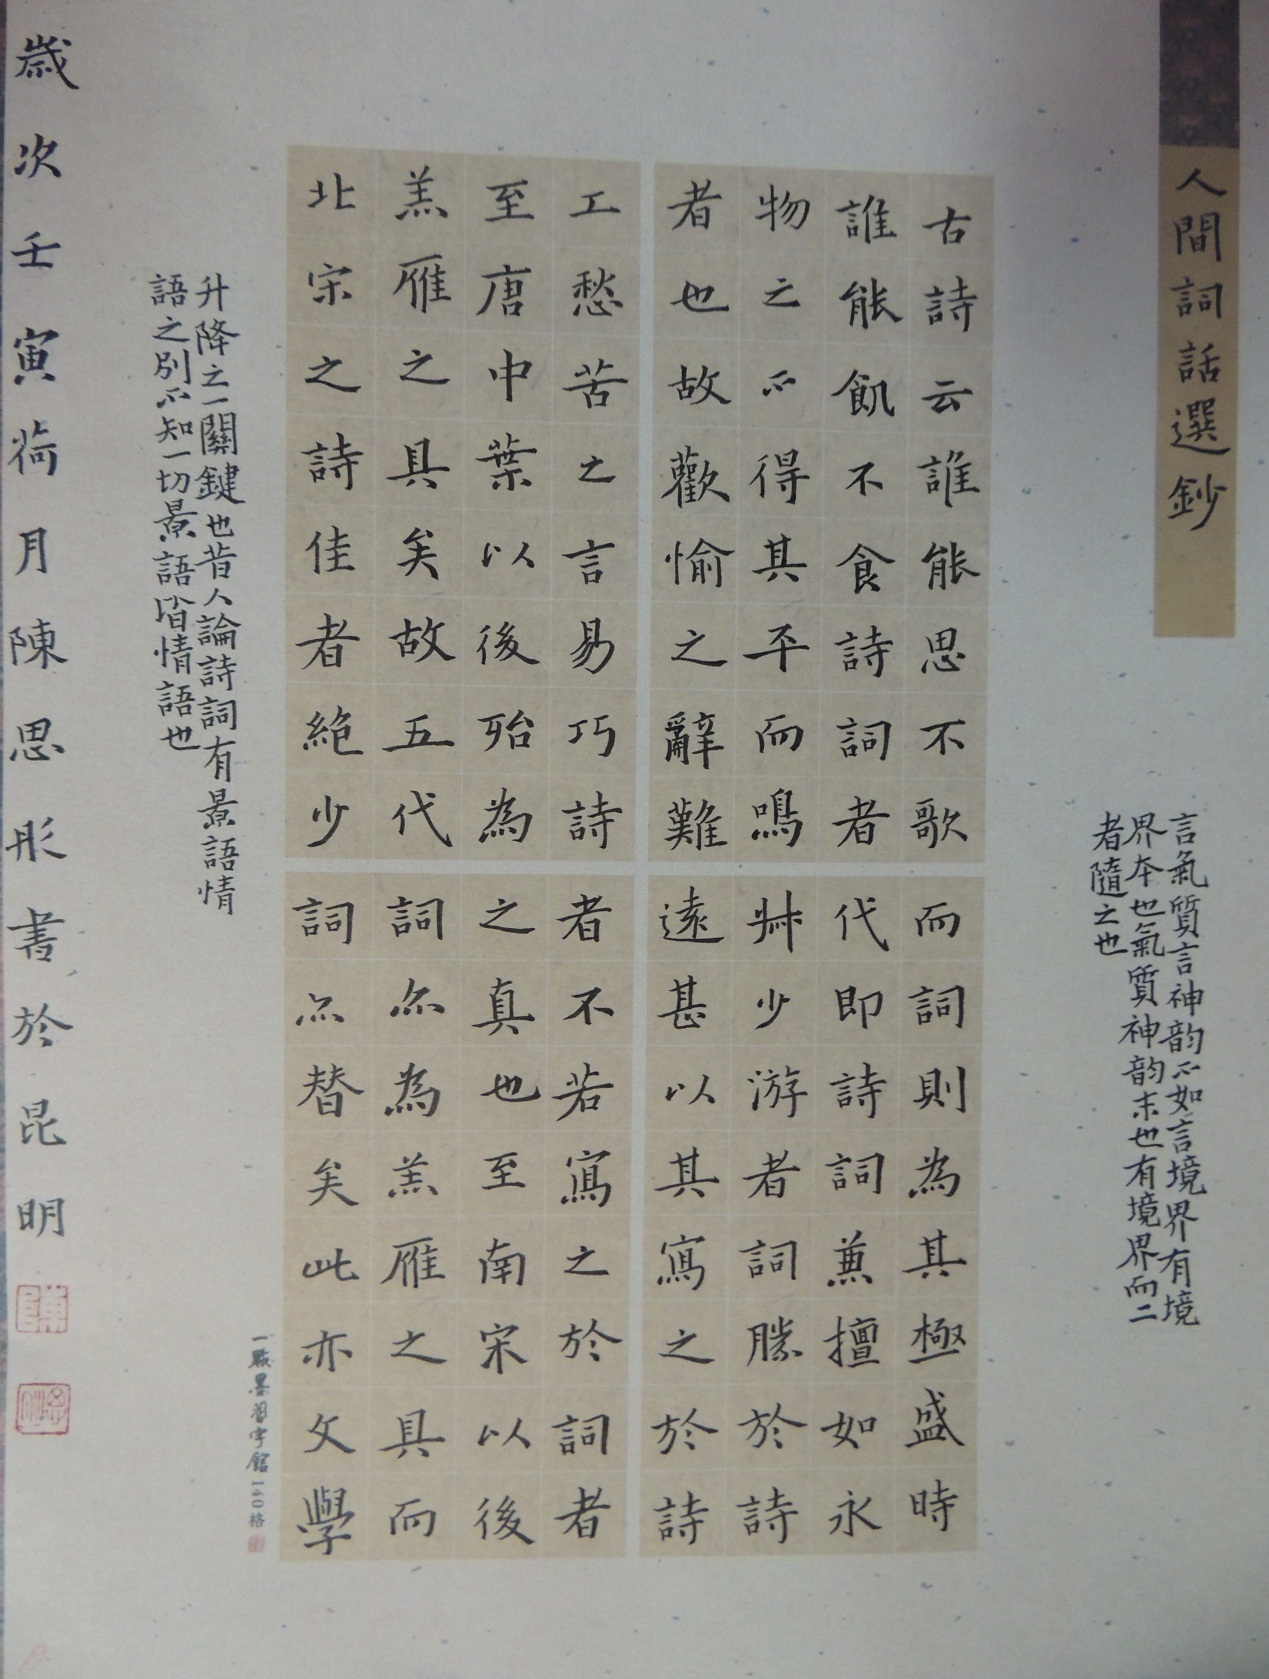 人間詞話選鈔
言氣質言神韵不如言境界有境
界本也氣質神韵末也有境界而二
者隨之也
古詩云誰能思不歌
誰能飢不食詩詞者
物之不得其平而鳴
者也故歡愉之辭難
工愁苦之言易巧詩
至唐中葉以後殆為
羔雁之具矣故五代
北宋之詩佳者絕少
而詞則為其極盛時
代即詩詞兼擅如永
叔少游者詞勝於詩
遠甚以其寫之於詩
者不若寫之於詞者
之真也至南宋以後
詞亦為羔雁之具而
詞亦替矣此亦文學
升降之一關鍵也昔人論詩詞有景語情
語之別不知一切景語皆情語也
歲次壬寅荷月陳思彤書於昆明
墨習字館140格